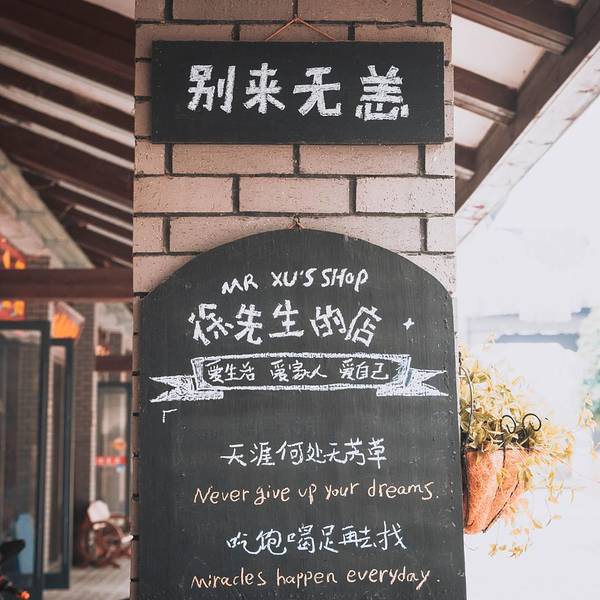 别来无恙
MR XU'S SHOP
徐先生的店
爱生活 爱家人 爱自己
天涯何处无芳草
Never give up your dreams.
吃饱喝足再去找
Miracles happen everyday.